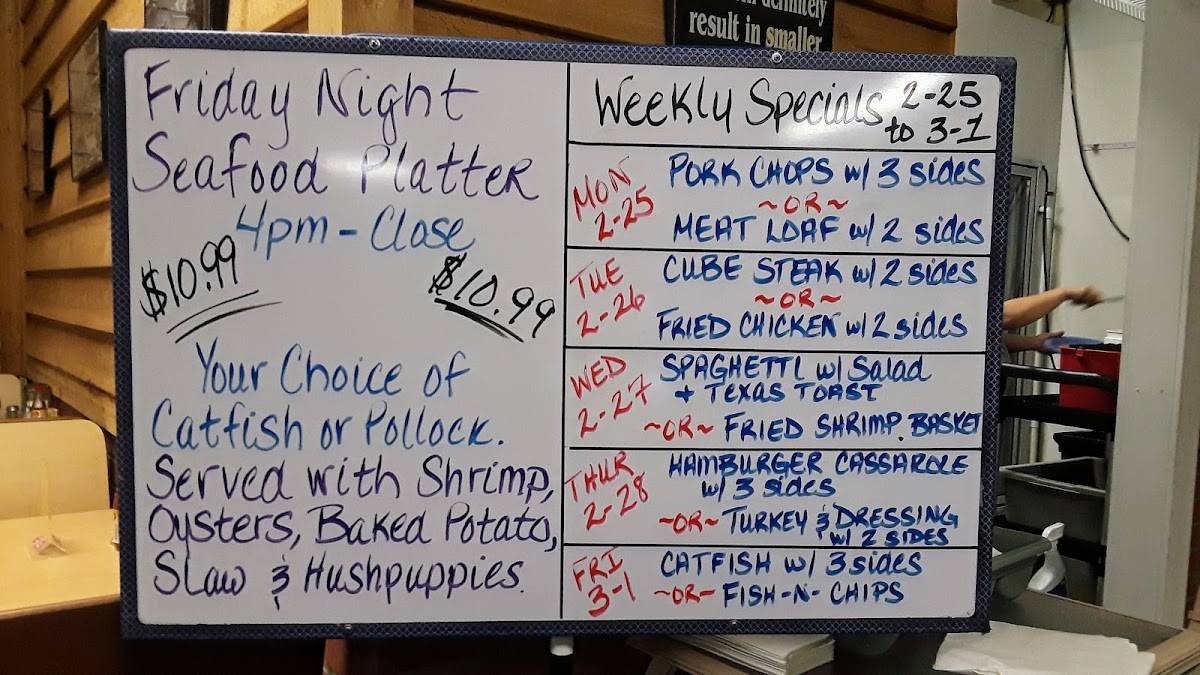 definitely
result in smaller
Friday Night
Seafood Platter
4pm - Close
$10.99
$10.99
Your Choice of
Catfish or Pollock.
Served with Shrimp,
Oysters, Baked Potato,
Slaw & Hushpuppies.
Weekly Specials 2-25
to 3-1
MON
2-25
PORK CHOPS w/ 3 sides
~OR~
MEAT LOAF w/ 2 sides
TUE
2-26
CUBE STEAK w/ 2 sides
~OR~
FRIED CHICKEN w/ 2 sides
WED
2-27
SPAGHETTI w/ Salad
+ Texas TOAST
~OR~ FRIED SHRIMP. BASKET
THUR
2-28
HAMBURGER CASSAROLE
w/ 3 sides
~OR~ TURKEY & DRESSING
w/ 2 SIDES
FRI
3-1
CATFISH w/ 3 sides
~OR~ FISH-N-CHIPS